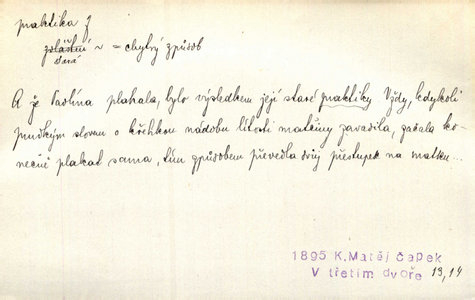 praktika f
zvláštní ~ = chytrý způsob
stará
A že Pavlína plakala, bylo výsledkem její staré praktiky. Vždy, kdykoli
prudkým slovem o křehkou nádobu lítosti matčiny zavadila, začala ko-
nečně plakat sama, tím způsobem převedla svůj přestupek na matku...
1895 K.Matěj Čapek
V třetím dvoře 13,14